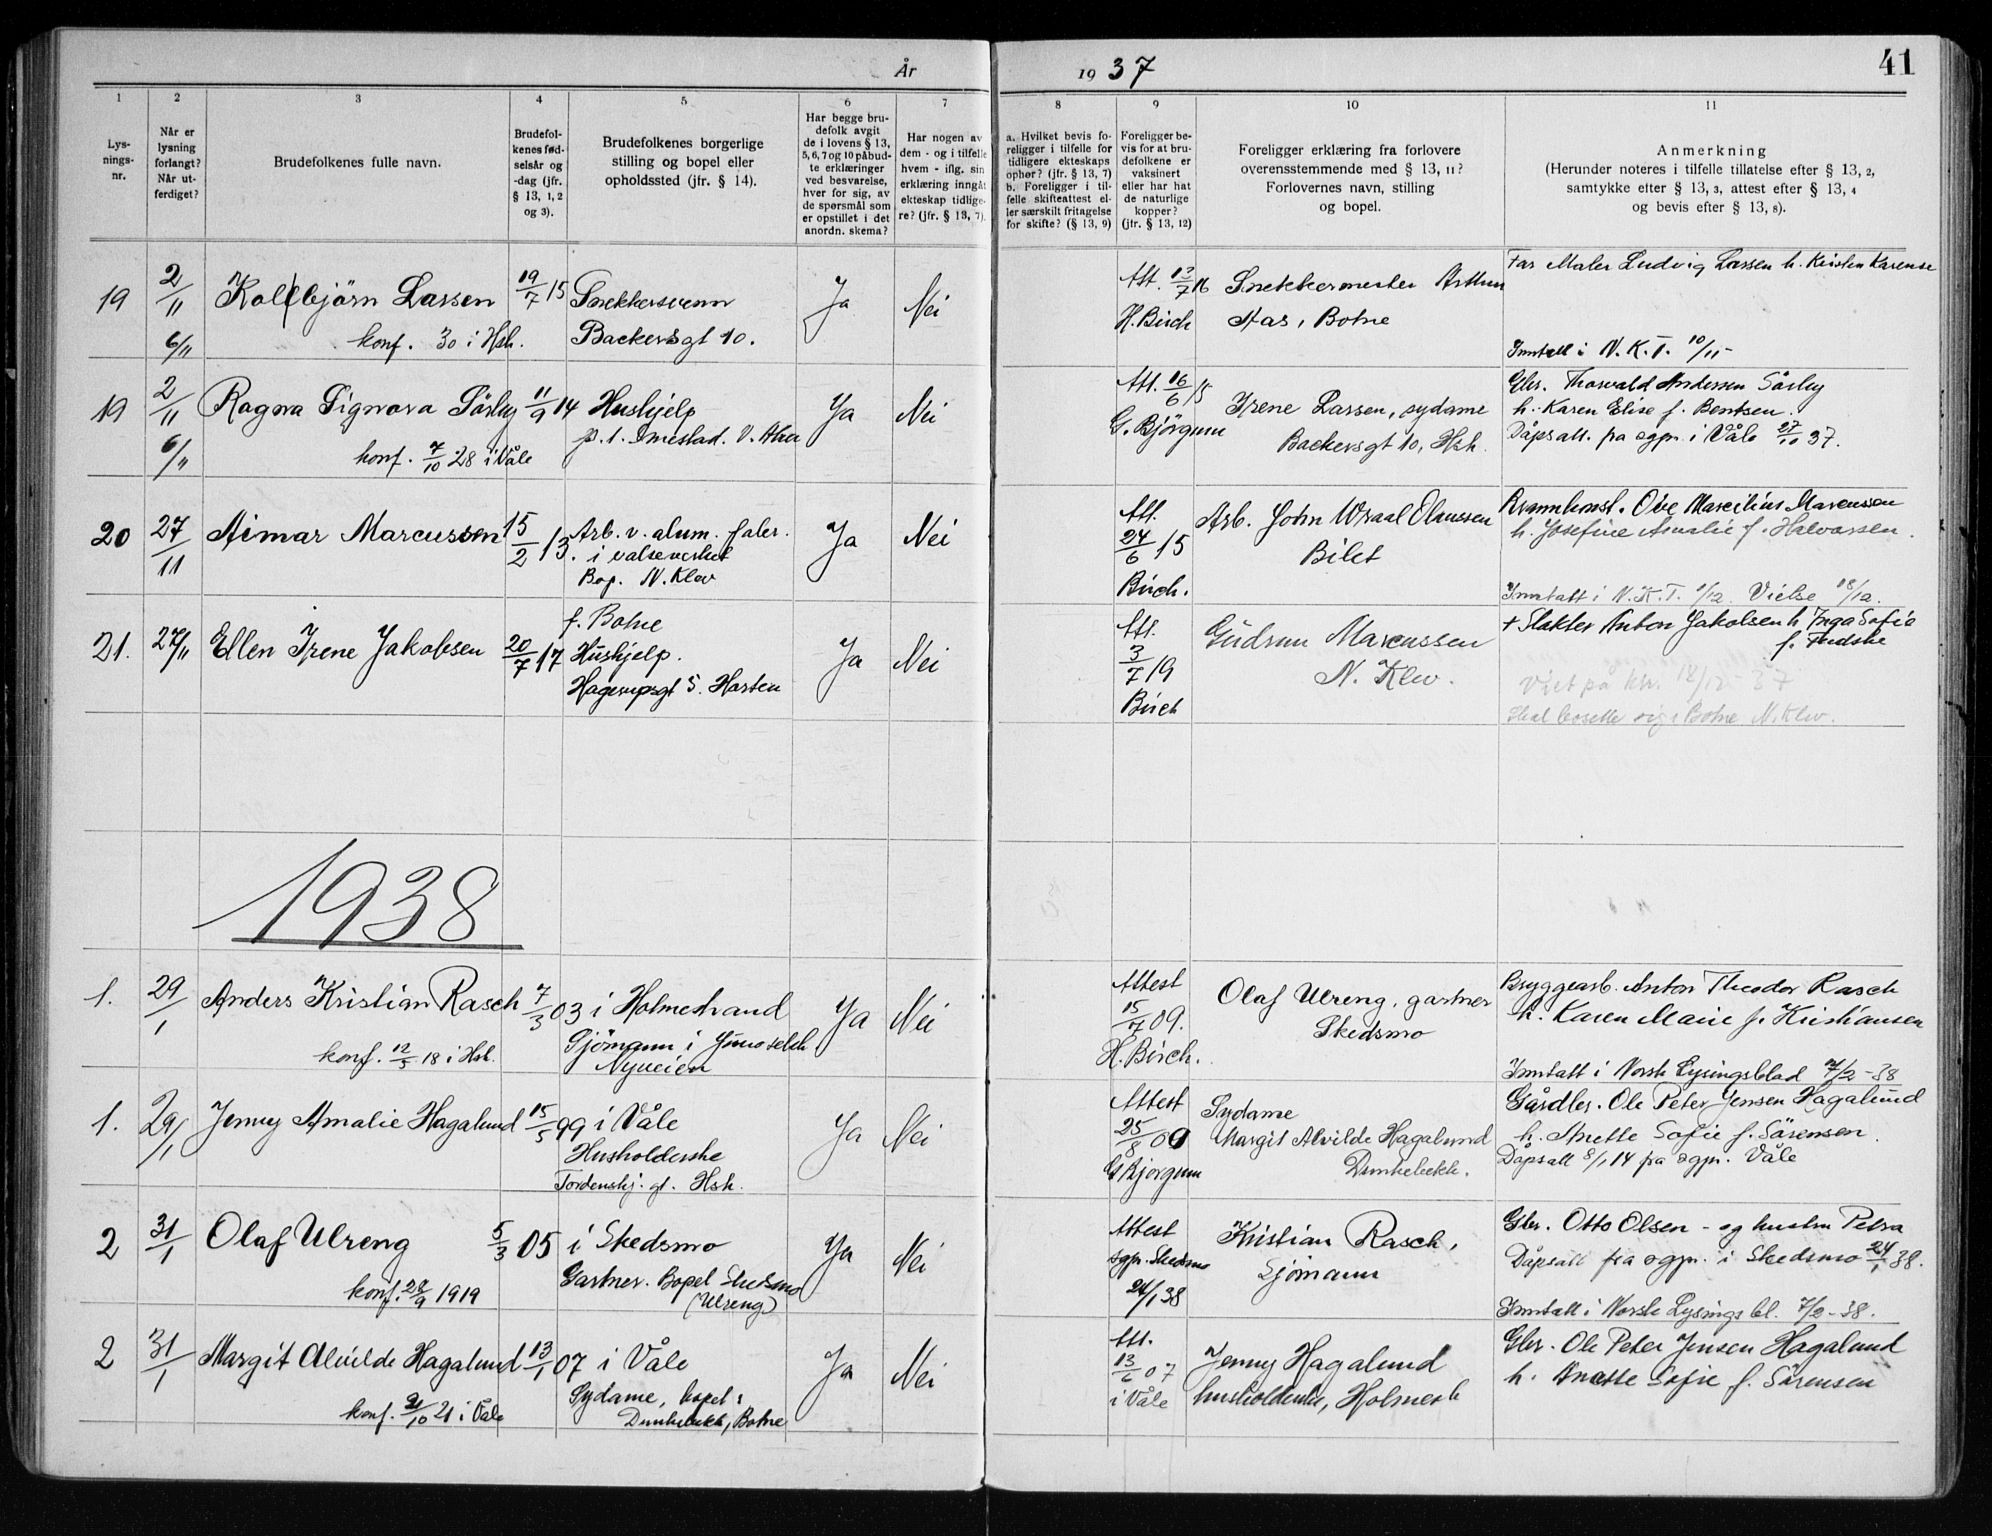 År 1937
41
1
Lys-
nings-
nr.
2
Når er
lysning
forlangt?
Når ut-
ferdiget?
3
Brudefolkenes fulle navn.
4
Brudefol-
kenes fød-
selsår og
-dag (jfr.
§ 13, 1, 2
og 3).
5
Brudefolkenes borgerlige
stilling og bopel eller
opholdssted (jfr. § 14).
6
Har begge bru-
defolk avgit
de i lovens § 13,
5, 6, 7 og 10 påbud-
te erklæringer
ved besvarelse,
hver for sig, av
de spørsmål som
er opstillet i det
anordn. skema?
7
Har nogen av
dem - og i tilfelle
hvem - iflg. sin
erklæring inngåt
ekteskap tidlige-
re? (jfr. § 13, 7).
8
a. Hvilket bevis fo-
religger i tilfelle for
tidligere ekteskaps
ophør? (jfr. § 13, 7)
b. Foreligger i til-
felle skifteattest el-
ler særskilt fritagelse
for skifte? (§ 13, 9)
9
Foreligger be-
vis for at bru-
defolkene er
vaksinert
eller har hat
de naturlige
kopper?
(jfr. § 13, 12)
10
Foreligger erklæring fra forlovere
overensstemmende med § 13, 11?
Forlovernes navn, stilling
og bopel.
11
Anmerkning
(Herunder noteres i tilfelle tillatelse efter § 13, 2,
samtykke efter § 13, 3, attest efter § 13, 4
og bevis efter § 13, 8).
19
2/11
6/11
Kolbjörn Lassen
konf. 30 i Hsh.
19/7 15
Snekkersvenn
Backersgt 10.
Ja
Nei
Att. 13/7 16
H. Birch
Snekkermester Arthur
Aas, Botne
Far Maler Ludvig Lassen h. Kristen Karense
Inntatt i N.K.T. 10/11-
19
2/11
6/11
Ragna Signora Sörby
konf. 7/10 28 i Våle
11/9 14
Hushjelp
Ja
Nei
Att. 16/6 15
G. Bjørgum
Irene Lassen, sydame
Backersgt 10, Hsh.
Gbr. Thorvald Andersen Sörby
h. Karen Elise f. Bentsen.
Dåpsatt. fra sgpr. i Våle 27/10 37.
20
27/11
Aimar Marcussen
15/2 13.
Arb. v. alum. faler.
i valseverket
Bop. N. Klev
Ja
Nei
Att.
24/6 15
Birch.
Arb. John Wraal Olaussen
Bilet
Ove Marcilius Marcussen
h. Josefine Amalie f. Halvorsen.
Inntatt i N.K.T. 1/12. Vielse 18/12.
21.
27/11
Ellen Irene Jakobsen
20/7 17
f. Botne
Hushjelp.
Hagerupsgt 5. Horten
Ja
Nei
Att.
3/7 19
Birch
Gudrun Marcussen
N. Klev.
+ Slakter Anton Jakobsen h Inga Sofie
Viet på ktr. 18/12-37
Skal bosette sig i Botne N. Klev.
1938
1.
29/1
Anders Kristian Rasch
konf. 12/5 18 i Hsl.
7/3 03
i Holmestrand
Sjömann i
Nyveien
Ja
Nei
Attest
15/7 09.
H. Birch.
Olaf Ulreng, gartner
Skedsmo
Bryggearb. Anton Theodor Rasch
h. Karen Marie f. Kristiansen
Inntatt i Norsk Lysingsblad 7/2-38
1.
29/1
Jenny Amalie Hagalund
15/5 99
i Våle
Husholderske
Tordenskj. gt. Hsh.
Ja
Nei
Attest
25/8 00
G Bjorgum
Sydame
Margit Alvilde Hagalund
Dunkebekk.
Gårdbr. Ole Peter Jensen Hagalund
h. Anette Sofie f. Sörensen.
Dåpsatt 8/1 14 fra sgpr. Våle
2
31/1
Olaf Ulreng
konf. 28/9 1919
5/3 05
i Skedsmo
Gartner. Bopel Skedsmo
(Ulreng)
Ja
Nei
Attest
sgpr. Skedsmo
24/1 38
Kristian Rasch,
Sjömann
Gbr. Otto Olsen - og hustru Petra
Dåpsatt fra sgpr. i Skedsmo 24/1 38.
Inntatt i Norsk Lysings bl. 7/2-38.
2
31/1
Margit Alvilde Hagalund
konf. 2/10 21 i Våle
13/1 07
i Våle
Sydame, bopel:
Dunkebekk, Botne
Ja
Nei
Att.
13/6 07
i Våle
Jenny Hagalund
husholderske, Holmestr
Gbr. Ole Peter Jensen Hagalund
h. Anette Sofie f. Sörensen